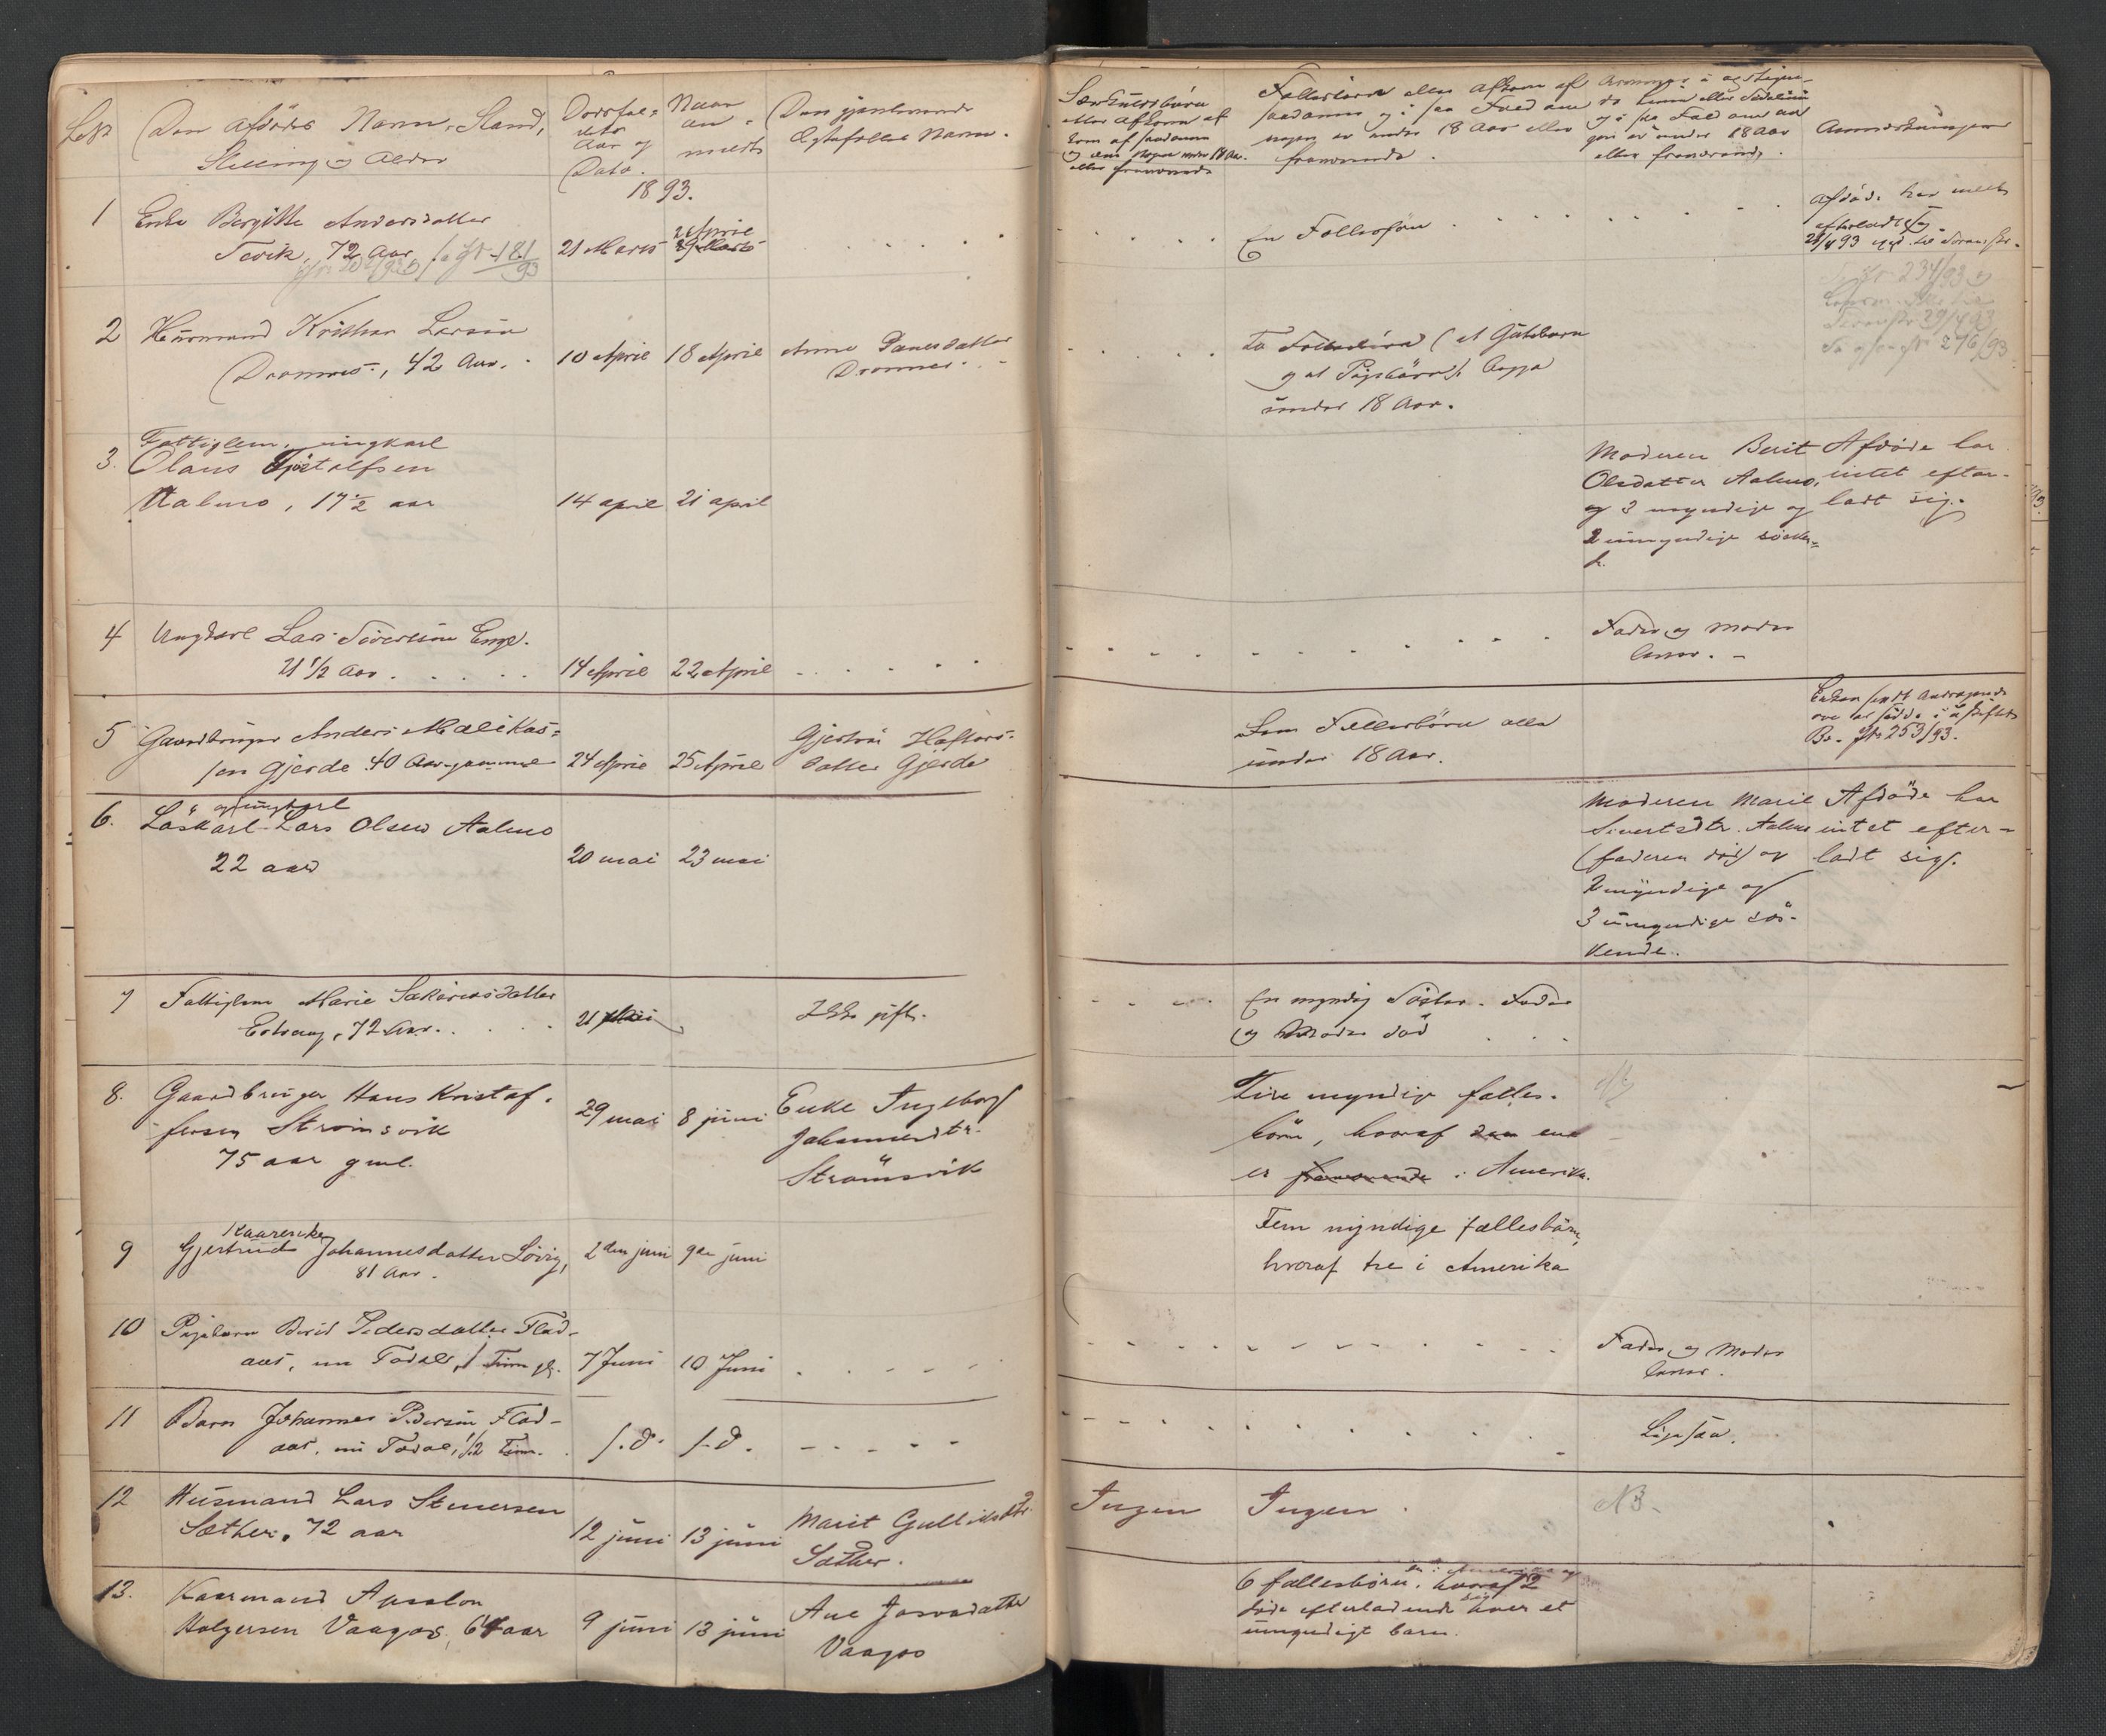 Løb No
Den Afdødes Navn, Stand,
Stilling og Alder
Dødsfaldets
Aar og
Dato.
Naar
anmeldt
Den gjenlevende
Ægtefælles Navn.
Særkuldsbørn
eller Afkom af
saadanne
og om nogen under 18 Aar.
eller fraværende
Fællesbørn eller Afkom af
saadanne og i saa Fald om
nogen er under 18 Aar eller
fraværende.
Arvinger i opstigen-
de Linie eller Sidelinie
og i saa Fald om no-
gen er under 18 Aar
eller fraværende.
Anmærkninger
1893.
1
Enke Bergitte Andersdatter
Tevik, 72 Aar
21 Marts
2 April
29 Marts
En Fællessøn
Afdøde har intet
efterladt sig
2
Husmand Kristian Larsen
Dromnes, 42 Aar.
10 April
18 April
Anne
Dromnes
To Fællesbørn (et Gutebarn
og et Pigebarn). Begge
under 18 Aar.
234/93
276/93
3.
Fattiglem, ungkarl
Olaus
Aalmo, 17 1/2 aar
14 april
21 april
Moderen Berit
Olsdatter Aalmo,
og 3 myndige og
2 umyndige søsken-
Afdøde har
intet efter-
ladt sig.
4
Ungkarl Lars Sivertsen Enge.
21 1/2 Aar
14 April
22 April
Fader og Moder
lever.
5
Gaardbruger Anders Malikas-
sen Gjerde 40 Aar gammel
24 April
25 April
Haftors-
datter Gjerde
Fem Fællesbørn alle
under 18 Aar.
Enken sendt Andragende
253/93.
6.
og ungkarl
Løskarl Lars Olsen Aalmo
22 aar
20 mai
23 mai
Moderen Marie
Sivertsdtr. Aalmo
(faderen død) og
2 myndige og
3 umyndige søs-
kende.
Afdøde har
intet efter-
ladt sig.
7
Fattiglem Marie Sakariasdatter
72 Aar.
21 Mai
Ikke gift.
En myndig Søster. Fader
og Moder død
8.
Gaardbruger Hans Kristof-
fersen Strömsvik
75 aar gml.
29 mai
8 juni
Enke Ingeborg
Johannesdtr.
Strömsvik
Fire myndige fælles-
börn, hvoraf den ene
er fraværende i Amerika.
9
Kaarenke
Gjertrud Johannesdatter Løvig,
81 Aar.
2den juni
9de juni
Fem myndige fællesbørn,
hvoraf tre i Amerika
10
Pigebarn Berit Pedersdatter Flad-
aas, nu Todal, 1 Time gl.
7 Juni
10 Juni
Fader og Moder
lever.
11
Barn Johannes Pedersen Flad-
aas, nu Todal, 1/2 Time.
s.d.
s.d.
Ligesaa.
12
Husmand Lars Stenersen
Sæther, 72 aar
12 juni
13 juni
Marit Gulliksdtr.
Sæther.
Ingen
Ingen.
13.
Kaarmand Apsalon
Holgersen Vaagos, 64 aar
9 juni
13 juni
Ane
Vaagos
6 fællesbørn, hvoraf 2
døde efterladende sig hver et
umyndigt barn.